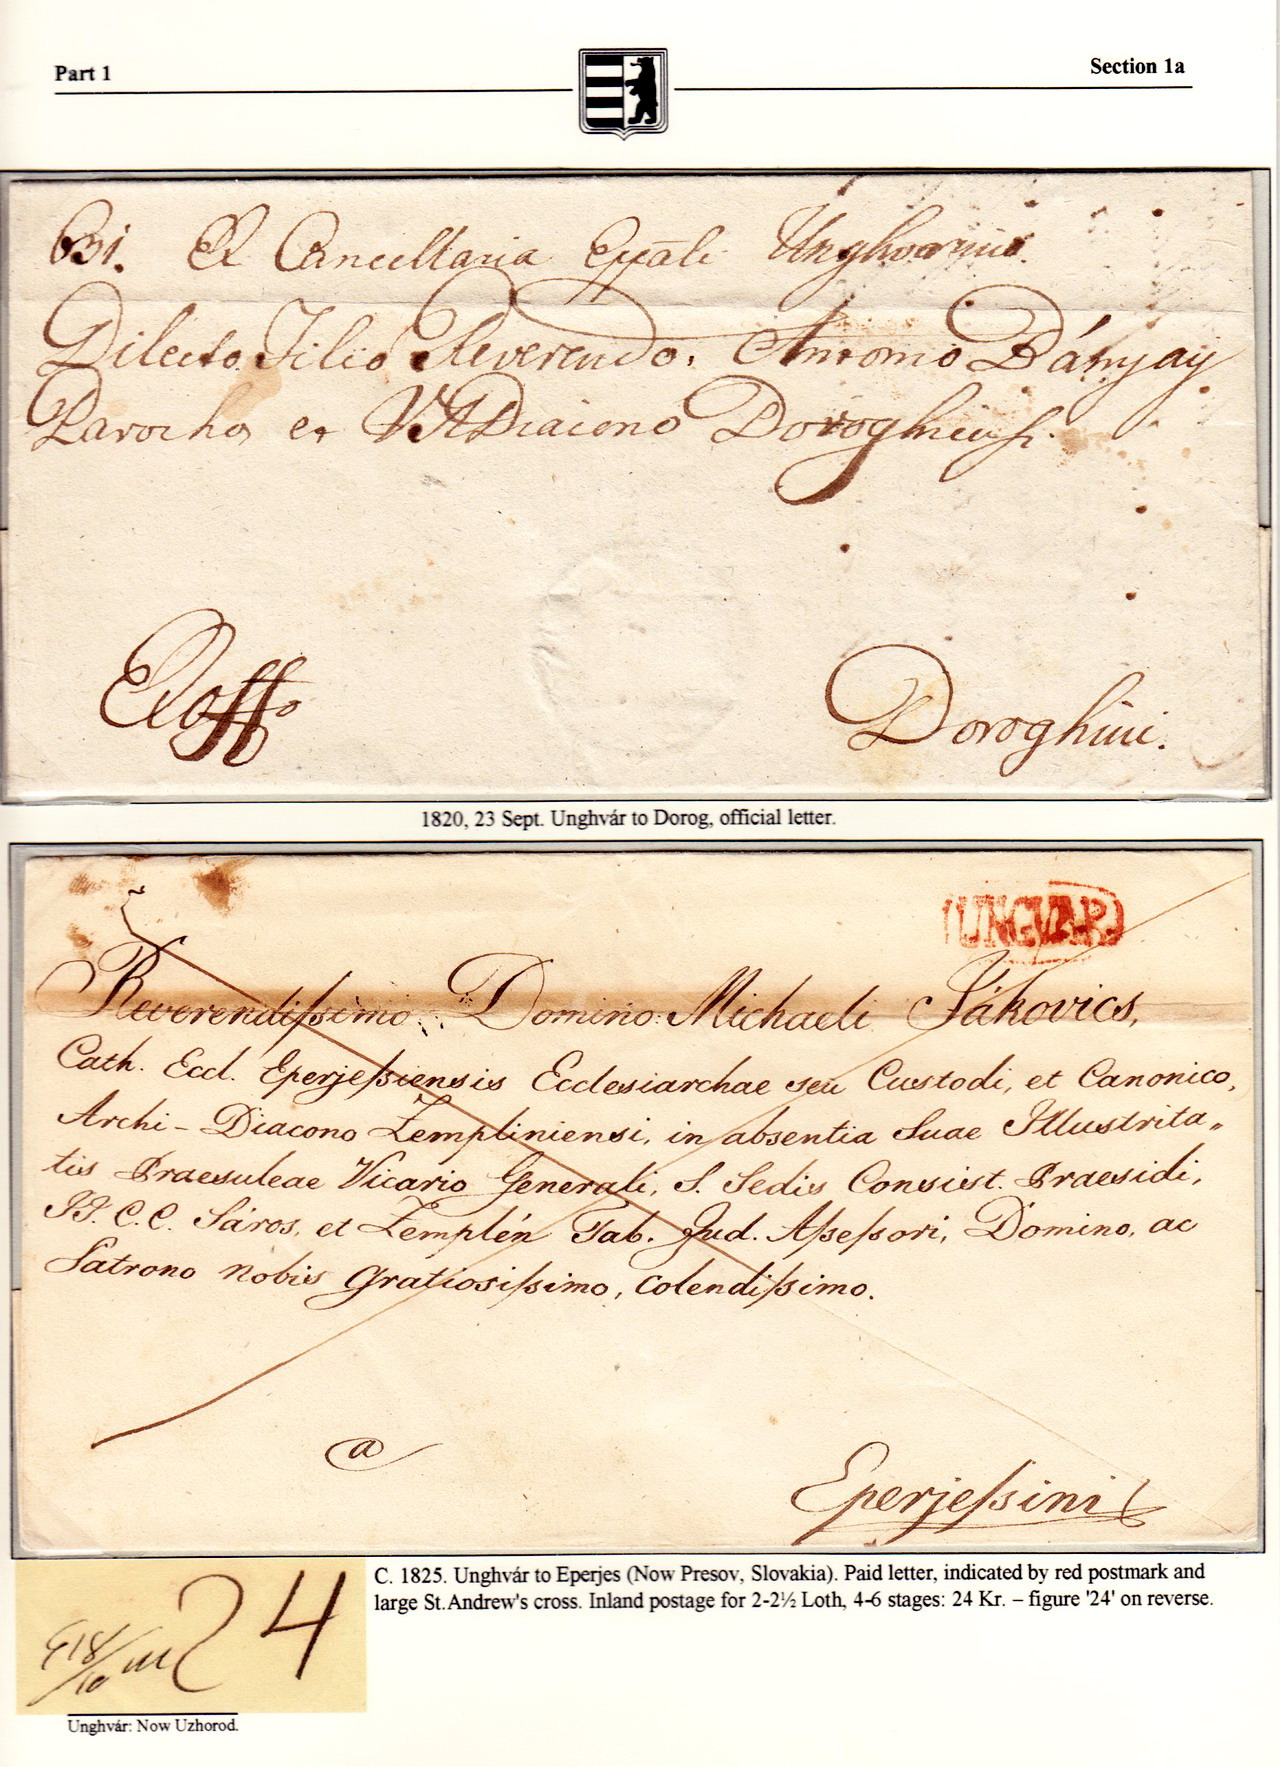 Part 1
Section 1a
631. Ex Cancellaria Eppali Unghvarini.
Dilecto Filio Reverendo. Antonio Bányay
Parocho, et VADiacono Doroghiensi.
Ex offo
Doroghini.
1820, 23 Sept. Unghvár to Dorog, official letter.
UNGVAR.
Reverendißimo Domino Michaeli
Cath. Eccl. Eperjeßiensis Ecclesiarchae seu Custodi, et Canonico,
Archi-Diacono Zempliniensi, in absentia Suae Illustrita„
tis Praesuleae Vicario Generali, S. Sedis Consist. Praesidi,
II. C. C. Sáros, et Zemplén Tab. Jud. Aßeßori, Domino, ac
Patrono Nobis Gratiosißimo, Colendißimo.
a
Eperjeßini
C. 1825. Unghvár to Eperjes (Now Presov, Slovakia). Paid letter, indicated by red postmark and
large St.Andrew's cross. Inland postage for 2-2½ Loth, 4-6 stages: 24 Kr. – figure '24' on reverse.
24
Unghvár: Now Uzhorod.